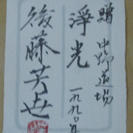 贈 中野道場
淨光
一九九〇年
後藤芳世